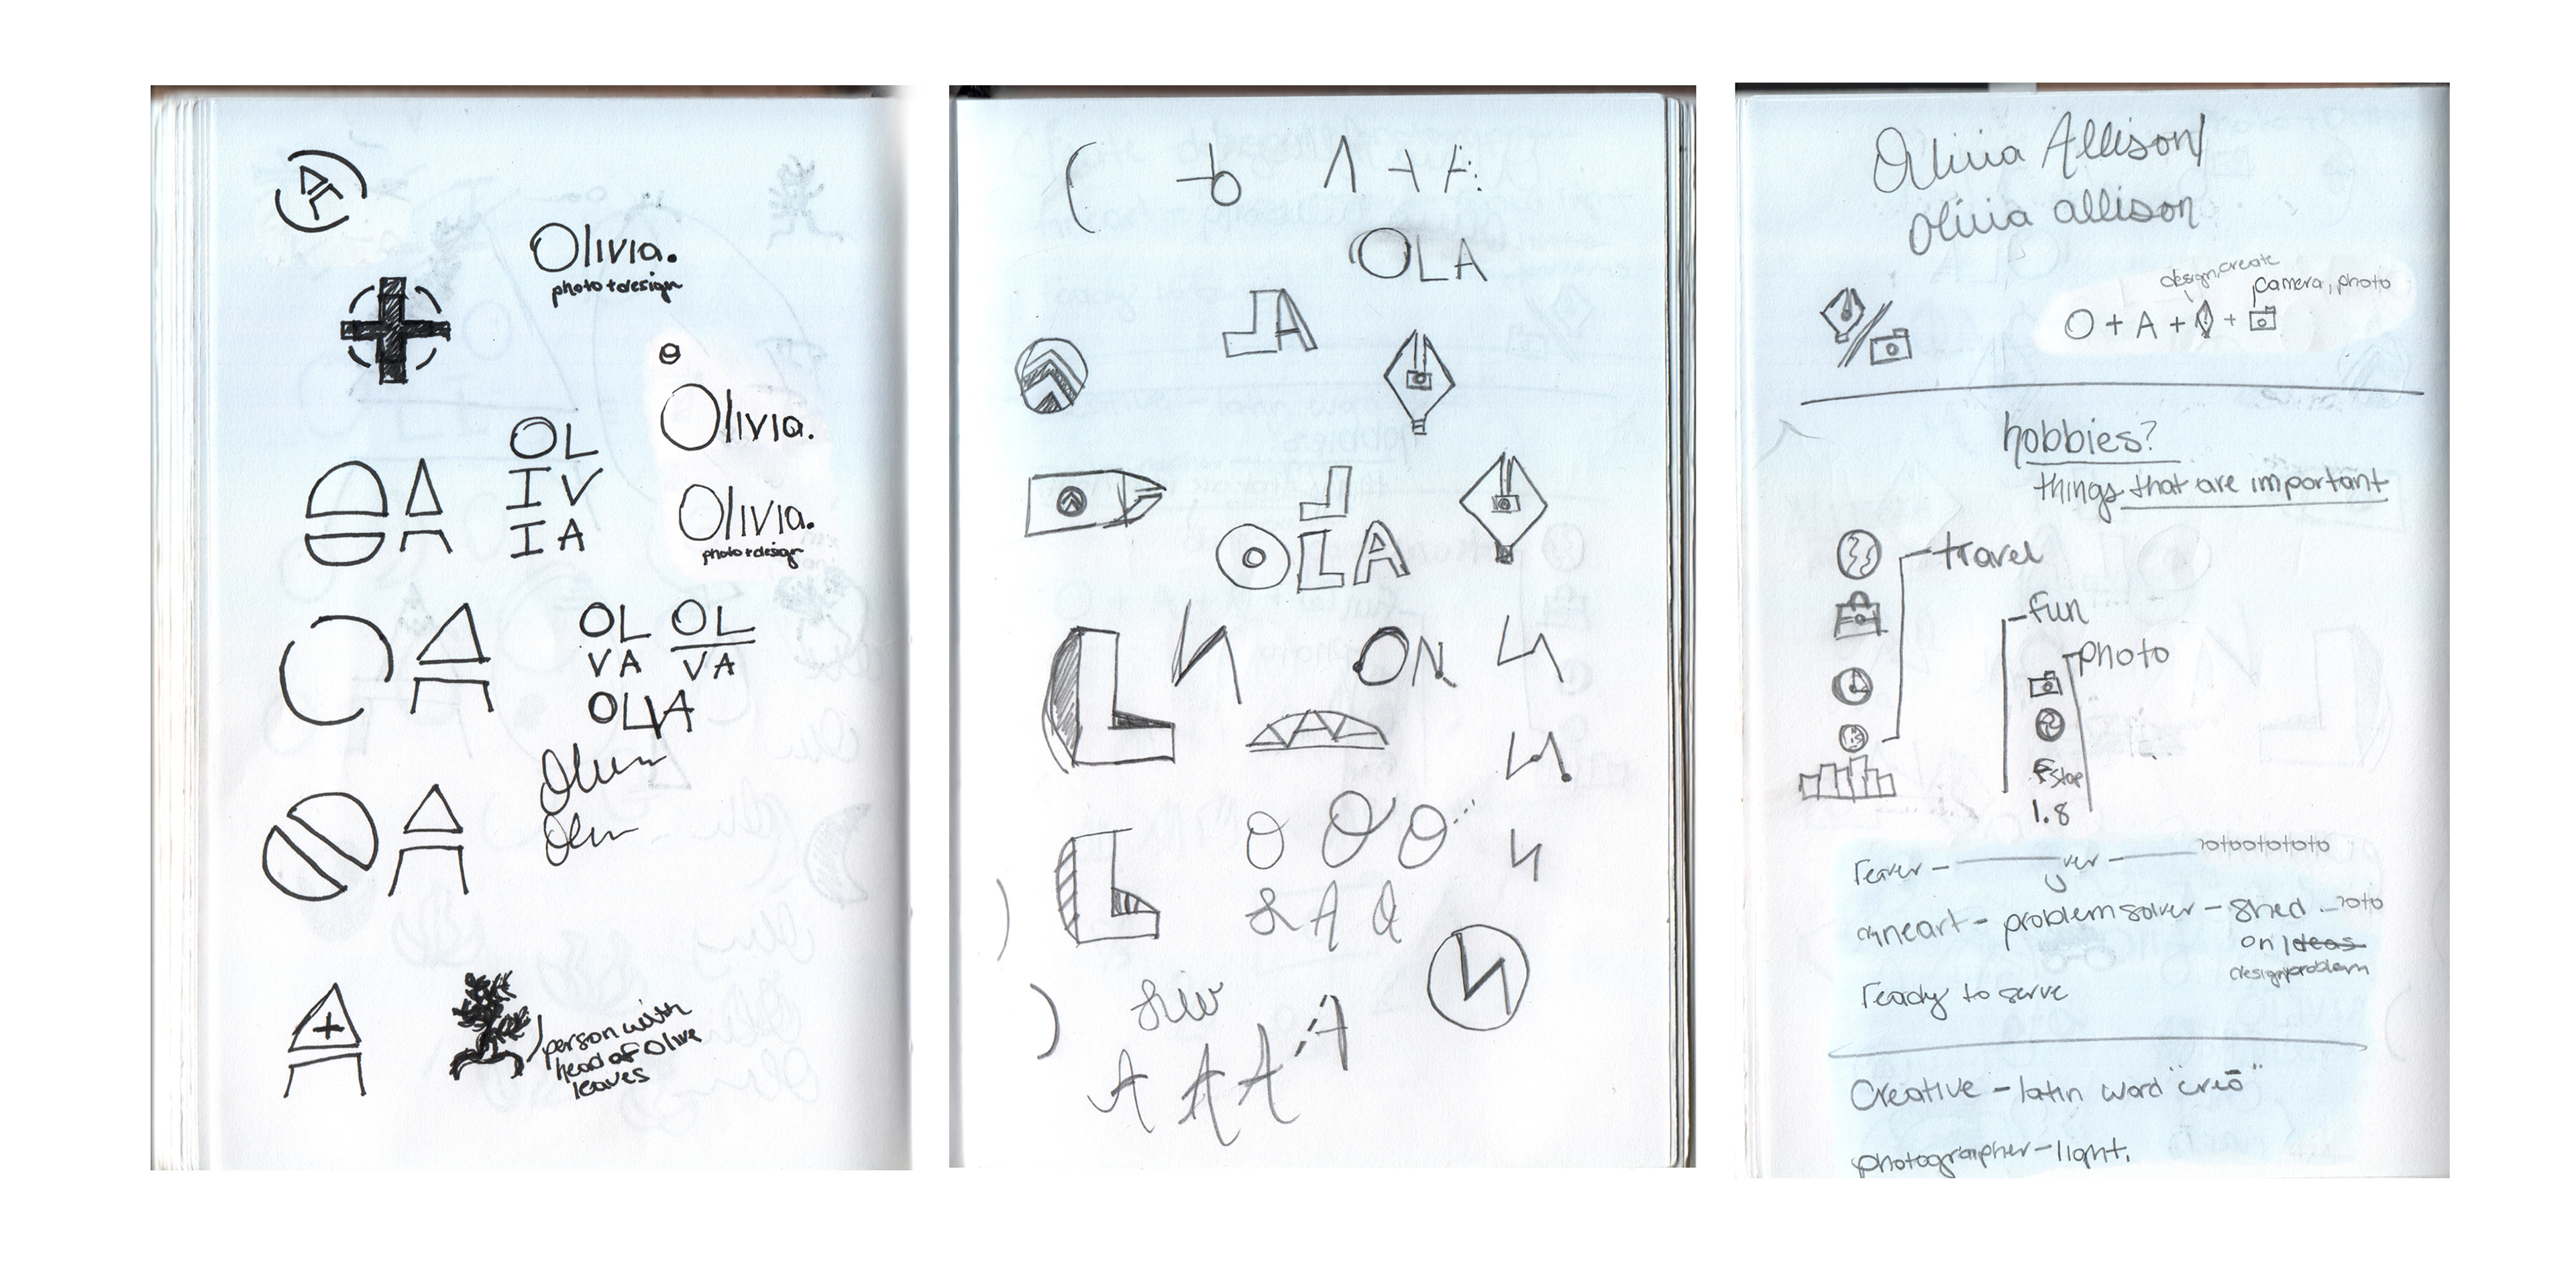 Olivia.
photo + design
Olivia.
OL
IV
IA
Olivia.
photo + design
A
OL
VA
OL
VA
A
OLIA
A
A
person with
head of Olive
leaves
OLA
LA
OLA
ON
O O O
A
A A A A
Olivia Allison
olivia allison
design, create
camera, photo
O + A + +
hobbies?
things that are important
travel
fun
photo
F stop
1.8
problem solver - shed
on ideas
design problem
ready to serve
Creative - latin word "creō"
photographer - light.